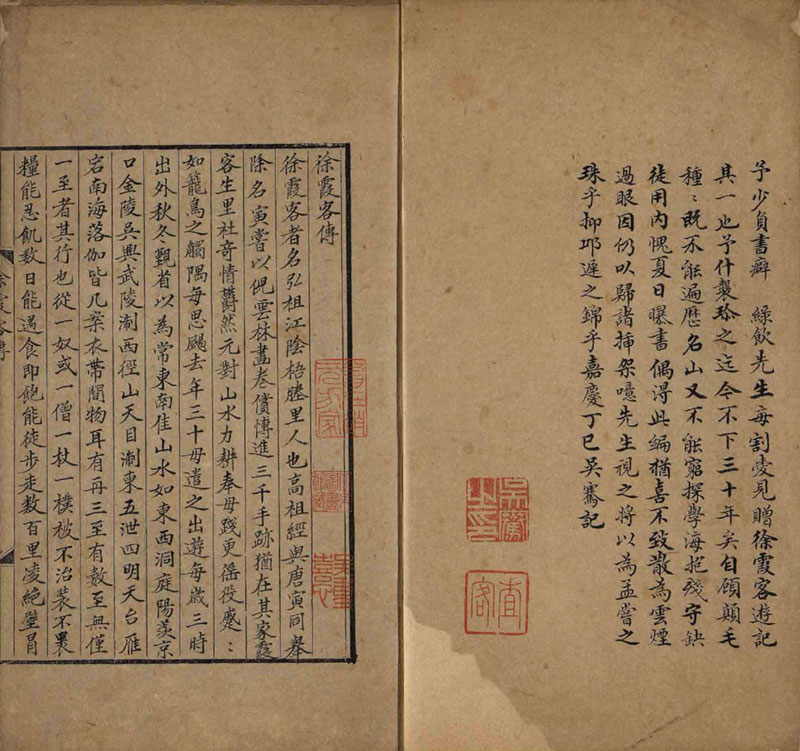 予少負書癖　綠飲先生每割愛見贈徐霞客遊記
其一也予什襲珍之迄今不下三十年矣自顧顛毛
種〻既不能遍歷名山又不能窮探學海抱殘守缺
徒用內愧夏日曝書偶得此編猶喜不致散為雲煙
過眼因仍以歸諸插架噫先生視之將以為孟嘗之
珠乎抑邛遲之錦乎嘉慶丁巳吳騫記
徐霞客傳
徐霞客者名弘祖江陰梧塍里人也高祖經與唐寅同舉
除名寅嘗以倪雲林畫卷償愽進三千手跡猶在其家霞
客生里社奇情鬱然元對山水力耕奉母踐更徭役蹙〻
如籠鳥之觸隅每思颺去年三十母遣之出遊每歲三時
出外秋冬覲省以為常東南佳山水如東西洞庭陽羨京
口金陵吳興武陵淛西徑山天目淛東五泄四明天台雁
宕南海落伽皆几案衣帶間物耳有再三至有數至無僅
一至者其行也從一奴或一僧一杖一樸被不治裝不裹
糧能忍飢數日能遇食即飽能徒步走數百里凌絕壑冒
徐霞客傳
吳騫